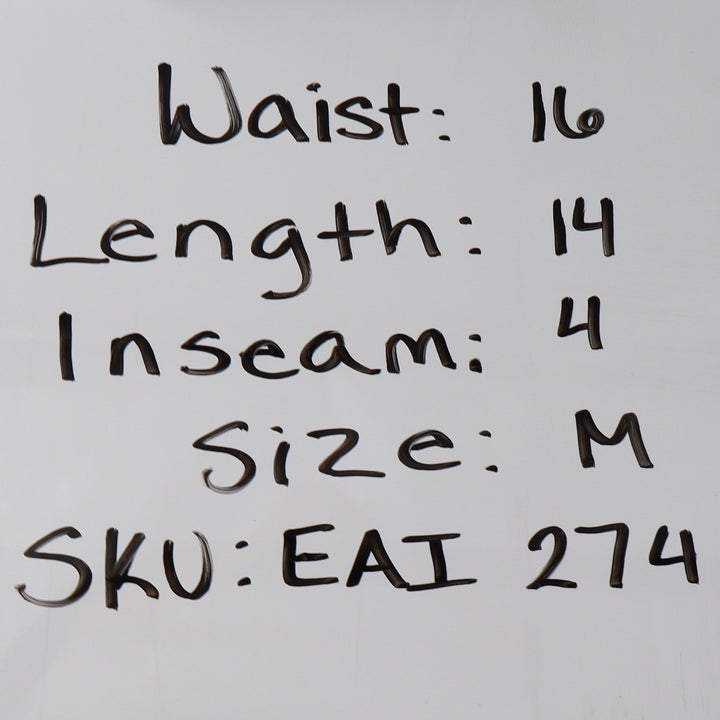 Waist: 16
Length: 14
Inseam: 4
Size: M
SKU: EAI 274